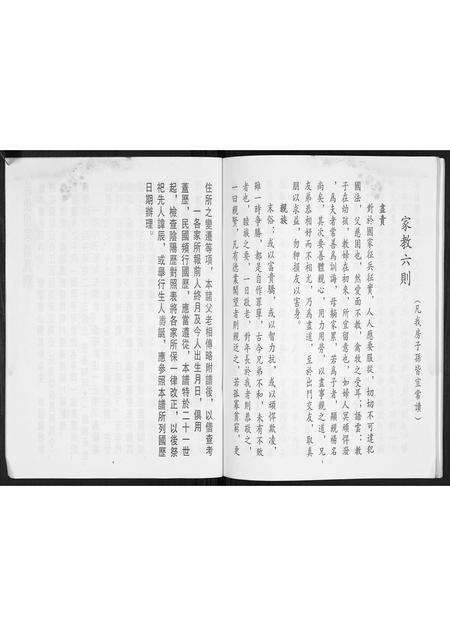 家教六則
(凡我房子孫皆宜常讀)
盡責
對於國家征兵征實，人人應要服從，切切不可違犯
國法，父慈固也，然愛而不教，禽牧之愛耳；語云：教
子在幼孩，教婦在初來，所宜留意也，如婦人冥頑得潑
，為夫者當善為訓誨，母躺家累，若為子者，顯親揚名
尚矣，其次要善體親心，用力用勞，以盡事親之道，兄
友弟恭相好而不相尤，乃為盡道，至於出門交友，取其
朋以求益，勿狎損友以害身。
親族
末俗；或以富貴驕，或以智力抗，或以頑悍欺凌，
雖一時爭勝，都是自作罪孽，古今兄弟不和，未有不敗
者也，雖族之要，一曰敬老，對年長於我者則恭敬之，
一曰親賢，凡有德業聞望者則親近之，若孤寡貧窮，更
住所之變遷等項，本諸父老相傳略附譜後，以備查考
一各家所報前人終月及今人出生月日，俱用
蓋歷，民國頒行國歷，應當遵從，本譜特於二十一世
起，檢查陰陽歷對照表將各家所保一律改正，以後祭
祀先人諱辰，或舉行生人壽誕，應參照本譜所列國歷
日期辦理。